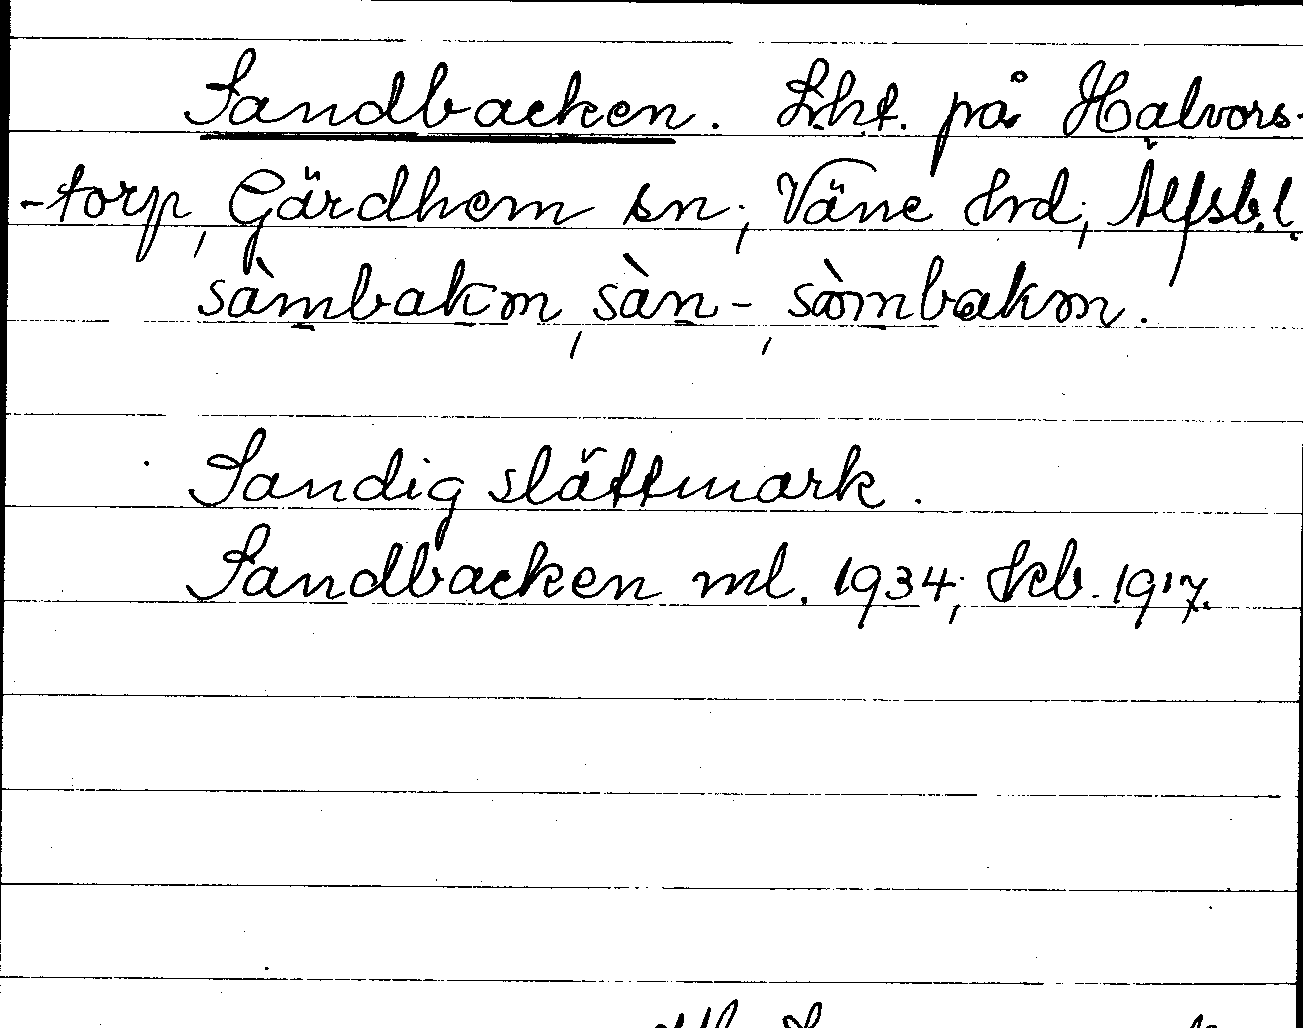 Sandbacken. Lht. på Halvors-
-torp, Gärdhem sn; Väne hrd; Älfsb.l.
sàmbakm, sàn-, sàmbakm.
Sandig slättmark.
Sandbacken ml. 1934; kb. 1917.